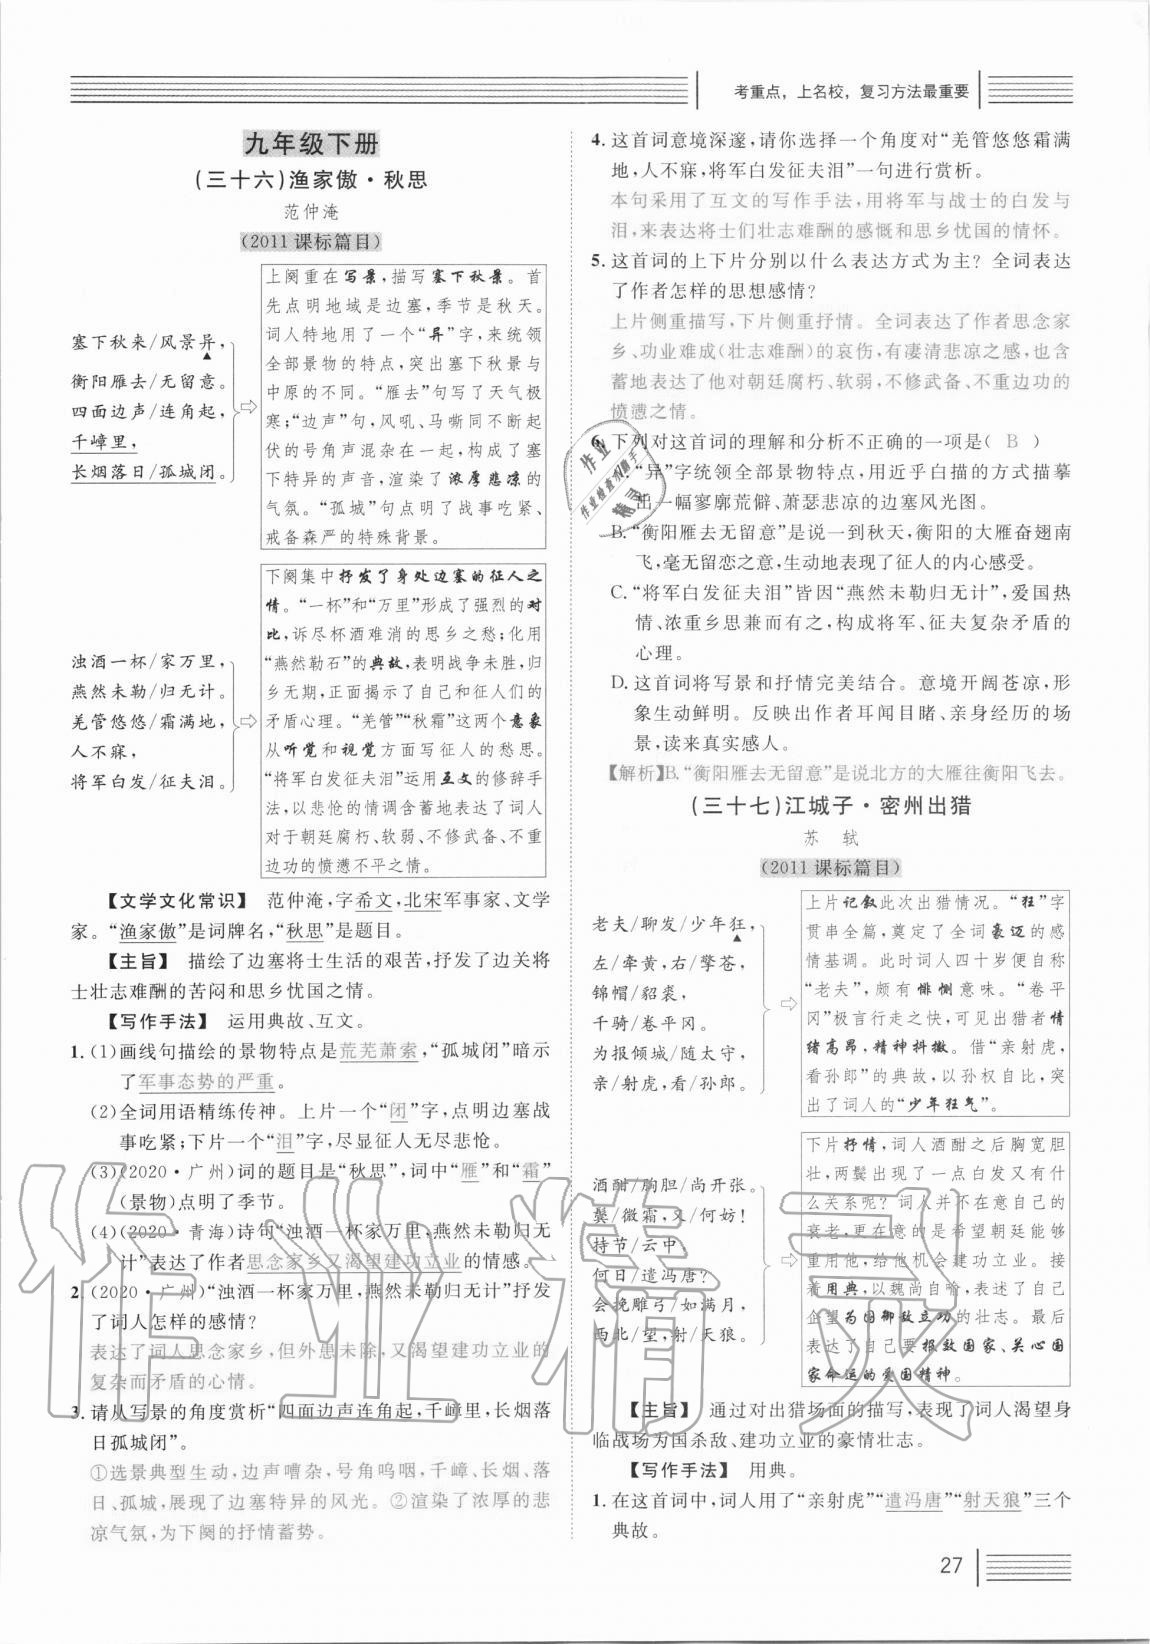 考重点，上名校，复习方法最重要
九年级下册
(三十六)渔家傲·秋思
范仲淹
(2011课标篇目)
塞下秋来/风景异，
衡阳雁去/无留意。
四面边声/连角起，
千嶂里，
长烟落日/孤城闭。
上阕重在写景，描写塞下秋景。首
先点明地域是边塞，季节是秋天。
词人特地用了一个“异”字，来统领
全部景物的特点，突出塞下秋景与
中原的不同。“雁去”句写了天气极
寒；“边声”句，风吼、马嘶同不断起
伏的号角声混杂在一起，构成了塞
下特异的声音，渲染了浓厚悲凉的
气氛。“孤城”句点明了战事吃紧、
戒备森严的特殊背景。
浊酒一杯/家万里，
燕然未勒/归无计。
羌管悠悠/霜满地，
人不寐，
将军白发/征夫泪。
下阕集中抒发了身处边塞的征人之
情。“一杯”和“万里”形成了强烈的对
比，诉尽杯酒难消的思乡之愁；化用
“燕然勒石”的典故，表明战争未胜，归
乡无期，正面揭示了自己和征人们的
矛盾心理。“羌管”“秋霜”这两个意象
从听觉和视觉方面写征人的愁思。
“将军白发征夫泪”运用互文的修辞手
法，以悲怆的情调含蓄地表达了词人
对于朝廷腐朽、软弱、不修武备、不重
边功的愤懑不平之情。
【文学文化常识】 范仲淹，字希文，北宋军事家、文学
家。“渔家傲”是词牌名，“秋思”是题目。
【主旨】 描绘了边塞将士生活的艰苦，抒发了边关将
士壮志难酬的苦闷和思乡忧国之情。
【写作手法】 运用典故、互文。
1.(1)画线句描绘的景物特点是荒芜萧索，“孤城闭”暗示
了军事态势的严重。
(2)全词用语精练传神。上片一个“闭”字，点明边塞战
事吃紧；下片一个“泪”字，尽显征人无尽悲怆。
(3)(2020·广州)词的题目是“秋思”，词中“雁”和“霜”
(景物)点明了季节。
(4)(2020·青海)诗句“浊酒一杯家万里，燕然未勒归无
计”表达了作者思念家乡又渴望建功立业的情感。
2.(2020·广州)“浊酒一杯家万里，燕然未勒归无计”抒发
了词人怎样的感情？
表达了词人思念家乡，但外患未除，又渴望建功立业的
复杂而矛盾的心情。
3.请从写景的角度赏析“四面边声连角起，千嶂里，长烟落
日孤城闭”。
①选景典型生动，边声嘈杂，号角呜咽，千嶂、长烟、落
日、孤城，展现了边塞特异的风光。②渲染了浓厚的悲
凉气氛，为下阕的抒情蓄势。
4.这首词意境深邃，请你选择一个角度对“羌管悠悠霜满
地，人不寐，将军白发征夫泪”一句进行赏析。
本句采用了互文的写作手法，用将军与战士的白发与
泪，来表达将士们壮志难酬的感慨和思乡忧国的情怀。
5.这首词的上下片分别以什么表达方式为主？全词表达
了作者怎样的思想感情？
上片侧重描写，下片侧重抒情。全词表达了作者思念家
乡、功业难成(壮志难酬)的哀伤，有凄清悲凉之感，也含
蓄地表达了他对朝廷腐朽、软弱，不修武备、不重边功的
愤懑之情。
6.下列对这首词的理解和分析不正确的一项是( B )
“异”字统领全部景物特点，用近乎白描的方式描摹
出一幅寥廓荒僻、萧瑟悲凉的边塞风光图。
B.“衡阳雁去无留意”是说一到秋天，衡阳的大雁奋翅南
飞，毫无留恋之意，生动地表现了征人的内心感受。
C.“将军白发征夫泪”皆因“燕然未勒归无计”，爱国热
情、浓重乡思兼而有之，构成将军、征夫复杂矛盾的
心理。
D.这首词将写景和抒情完美结合。意境开阔苍凉，形
象生动鲜明。反映出作者耳闻目睹、亲身经历的场
景，读来真实感人。
【解析】B.“衡阳雁去无留意”是说北方的大雁往衡阳飞去。
(三十七)江城子·密州出猎
苏 轼
(2011课标篇目)
老夫/聊发/少年狂，
左/牵黄，右/擎苍，
锦帽/貂裘，
千骑/卷平冈。
为报倾城/随太守，
亲/射虎，看/孙郎。
上片记叙此次出猎情况。“狂”字
贯串全篇，奠定了全词豪迈的感
情基调。此时词人四十岁便自称
“老夫”，颇有悱恻意味。“卷平
冈”极言行走之快，可见出猎者情
绪高昂，精神抖擞。借“亲射虎，
看孙郎”的典故，以孙权自比，突
出了词人的“少年狂气”。
酒酣/胸胆/尚开张。
鬓/微霜，又/何妨！
持节/云中，
何日/遣冯唐？
会挽雕弓/如满月，
西北/望，射/天狼。
下片抒情，词人酒酣之后胸宽胆
壮，两鬓出现了一点白发又有什
么关系呢？词人并不在意自己的
衰老，更在意的是希望朝廷能够
重用他，给他机会建功立业。接
着用典，以魏尚自喻，表达了自己
企望为国御敌立功的壮志。最后
表达了自己要报效国家、关心国
家命运的爱国精神。
【主旨】 通过对出猎场面的描写，表现了词人渴望身
临战场为国杀敌、建功立业的豪情壮志。
【写作手法】 用典。
1.在这首词中，词人用了“亲射虎”“遣冯唐”“射天狼”三个
典故。
27
作业精灵